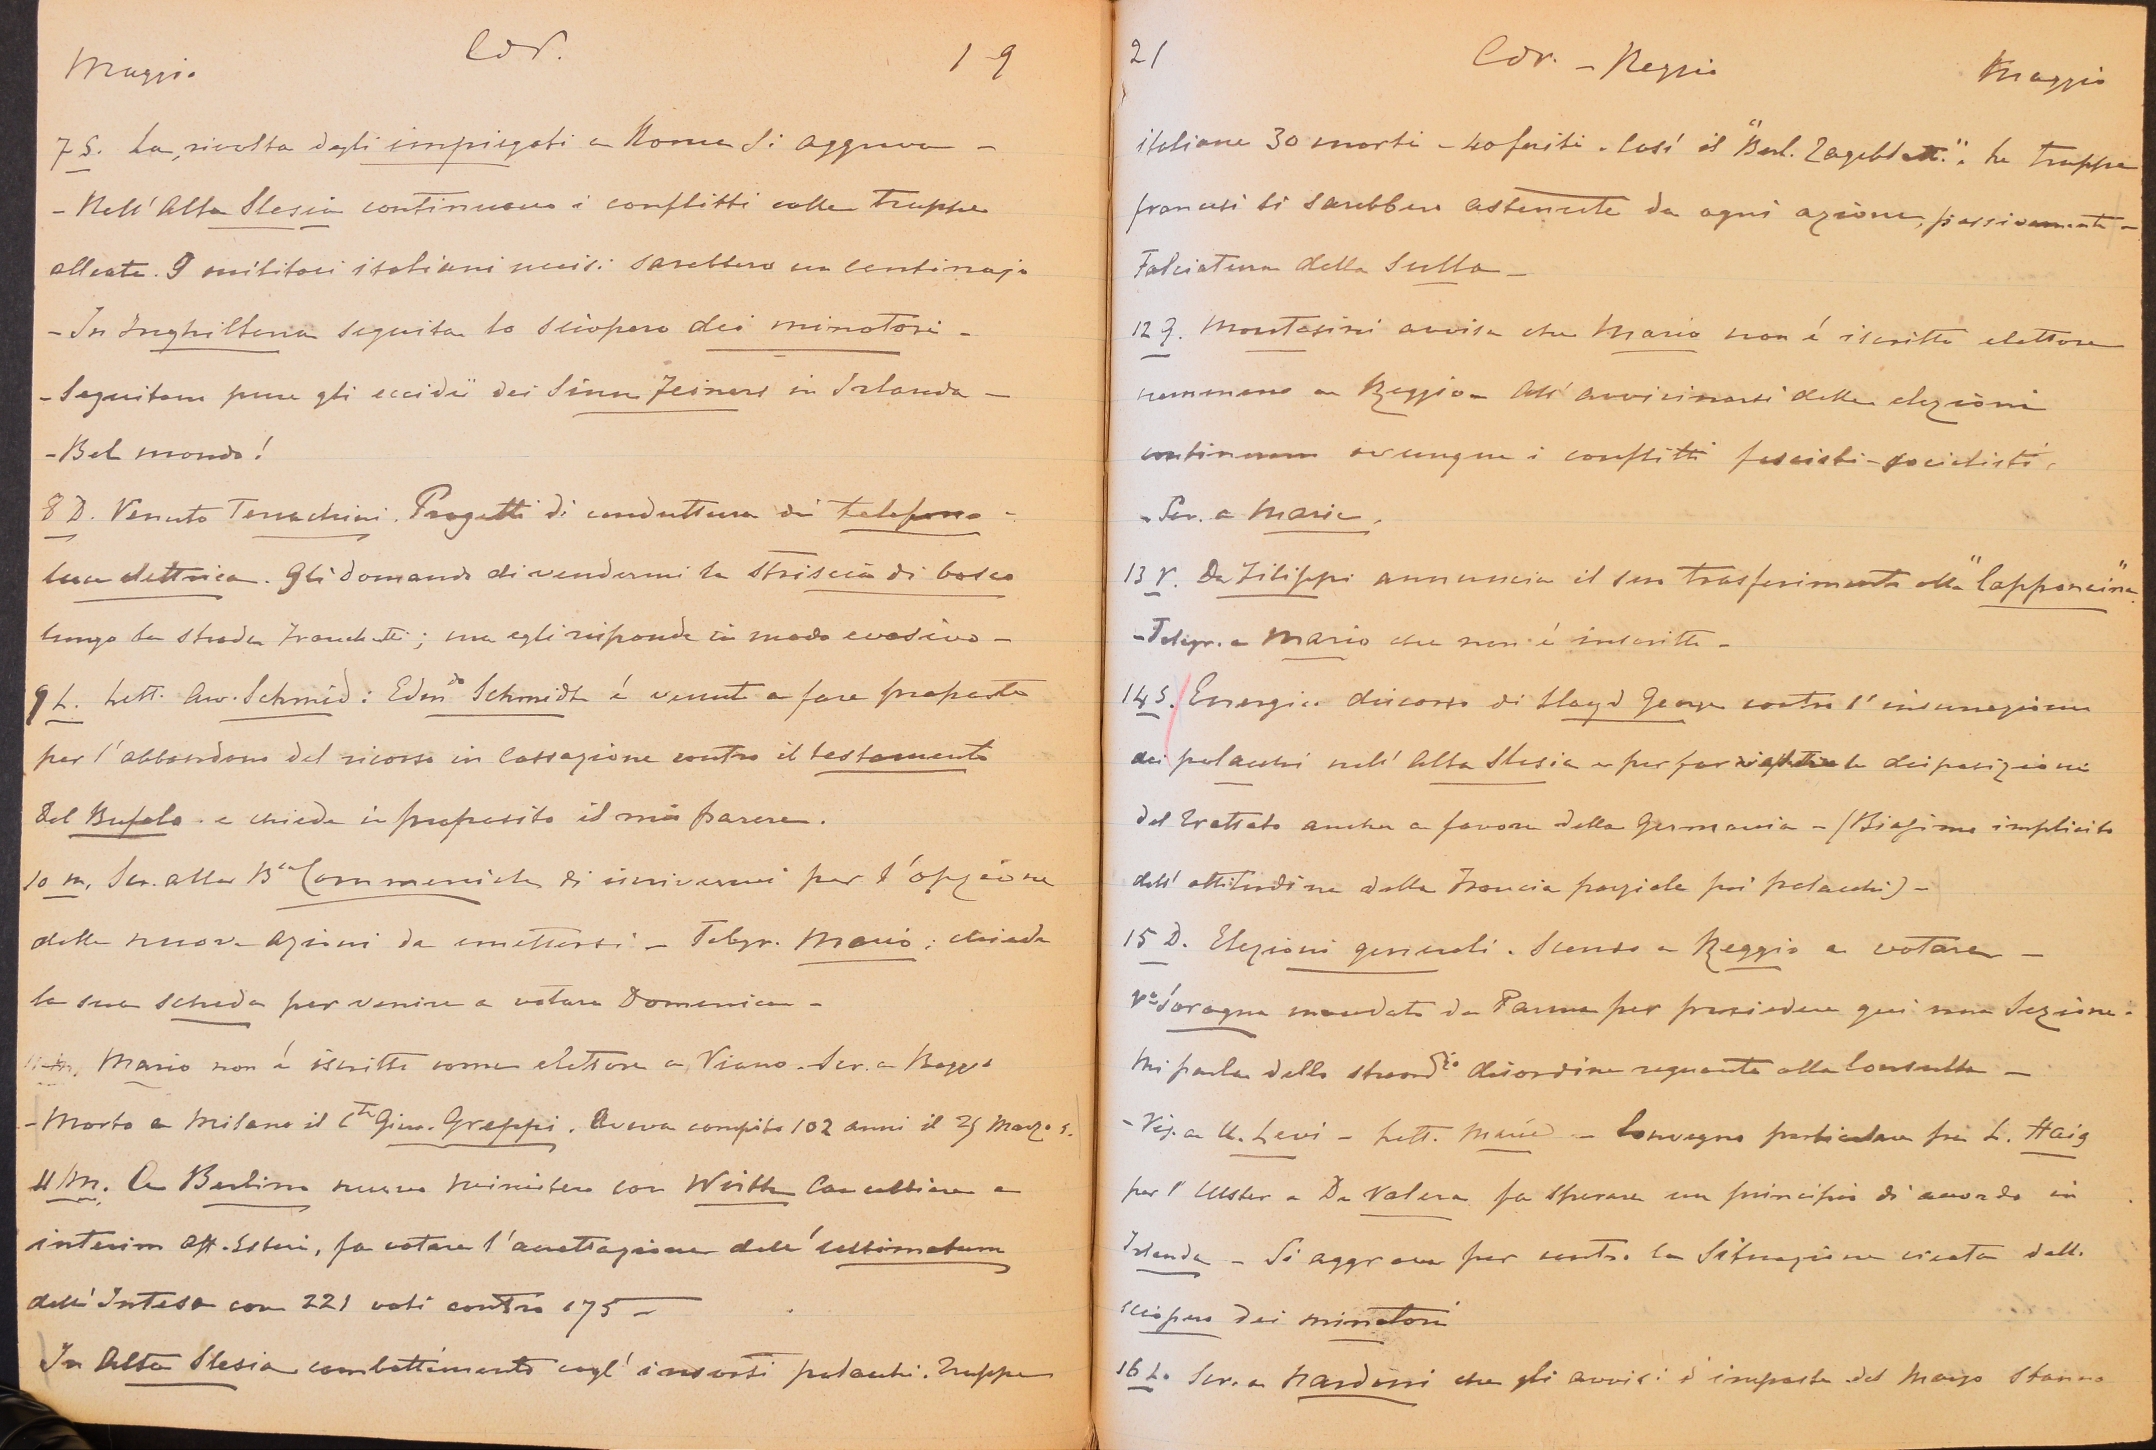 Maggio Cor. 19
7 S. La rivolta degli impiegati a Roma si aggrava –
– Nell'Alta Slesia continuano i conflitti colle truppe
alleate. 9 militari italiani uccisi sarebbero un centinajo
– In Inghilterra seguita lo sciopero dei minatori –
– Seguitano pure gli eccidii dei Sinn Feiners in Irlanda –
– Bel mondo!
8 D. Venuto Terrachini. Progetti di conduttura di telefono –
luce elettrica. Gli domando di vendermi la striscia di bosco
lungo la strada Franchetti; ma egli risponde in modo evasivo –
9 L. Lett. Avv. Schmid: Edmdo Schmidt é venuto a fare proposte
per l'abbandono del ricorso in Cassazione contro il testamento
Del Bufalo e chiede in proposito il mio parere.
10 M. Scr. alla Bca Commerciale di iscrivermi per l'opzione
delle nuove azioni da emettersi – Telegr. Mario: chiede
la sua scheda per venire a votare Domenica –
Mario non é iscritto come elettore a Viano. Scr. a Reggio
– Morto a Milano il Cte Giu. Greppi. Aveva compito 102 anni il 25 Marzo s.
11 M. A Berlino nuovo ministero con Wirth Cancelliere e
interim Aff. Esteri, fa votare l'accettazione dell'ultimatum
dell'Intesa con 221 voti contro 175 –
In Alta Slesia combattimento cogl'insorti polacchi. Truppe
21 Cor. – Reggio Maggio
italiane 30 morti – 40 feriti. Così il "Berl. Tageblatt". Le truppe
francesi si sarebbero astenute da ogni azione, passivamente –
Falciatura della Sulla –
12 G. Montasini avvisa che Mario non é iscritto elettore
nemmeno a Reggio – All'avvicinarsi delle elezioni
continuano ovunque i conflitti fascisti-socialisti.
– Scr. a Mario.
13 V. De Filippi annuncia il suo trasferimento alla "Capponcina".
– Telegr. a Mario che non é inscritto –
14 S. Energico discorso di Lloyd George contro l'insurrezione
dei polacchi nell'Alta Slesia e per far rispettare le disposizioni
del Trattato anche a favore della Germania – (Biasimo implicito
dell'attitudine della Francia parziale pei polacchi) –
15 D. Elezioni generali. Scendo a Reggio a votare –
Soragna mandato da Parma per presiedere qui una Sezione.
Mi parla dello straordrio disordine regnante alla Consulta –
– Vis. a U. Levi – Lett. Mario – Convegno particolare fra L. Haig
per l'Ulster e De Valera fa sperare un principio di accordo in
Irlanda – Si aggrava per contro la situazione creata dallo
sciopero dei minatori
16 L. Scr. a Nardini che gli avvisi d'imposte del Marzo stanno